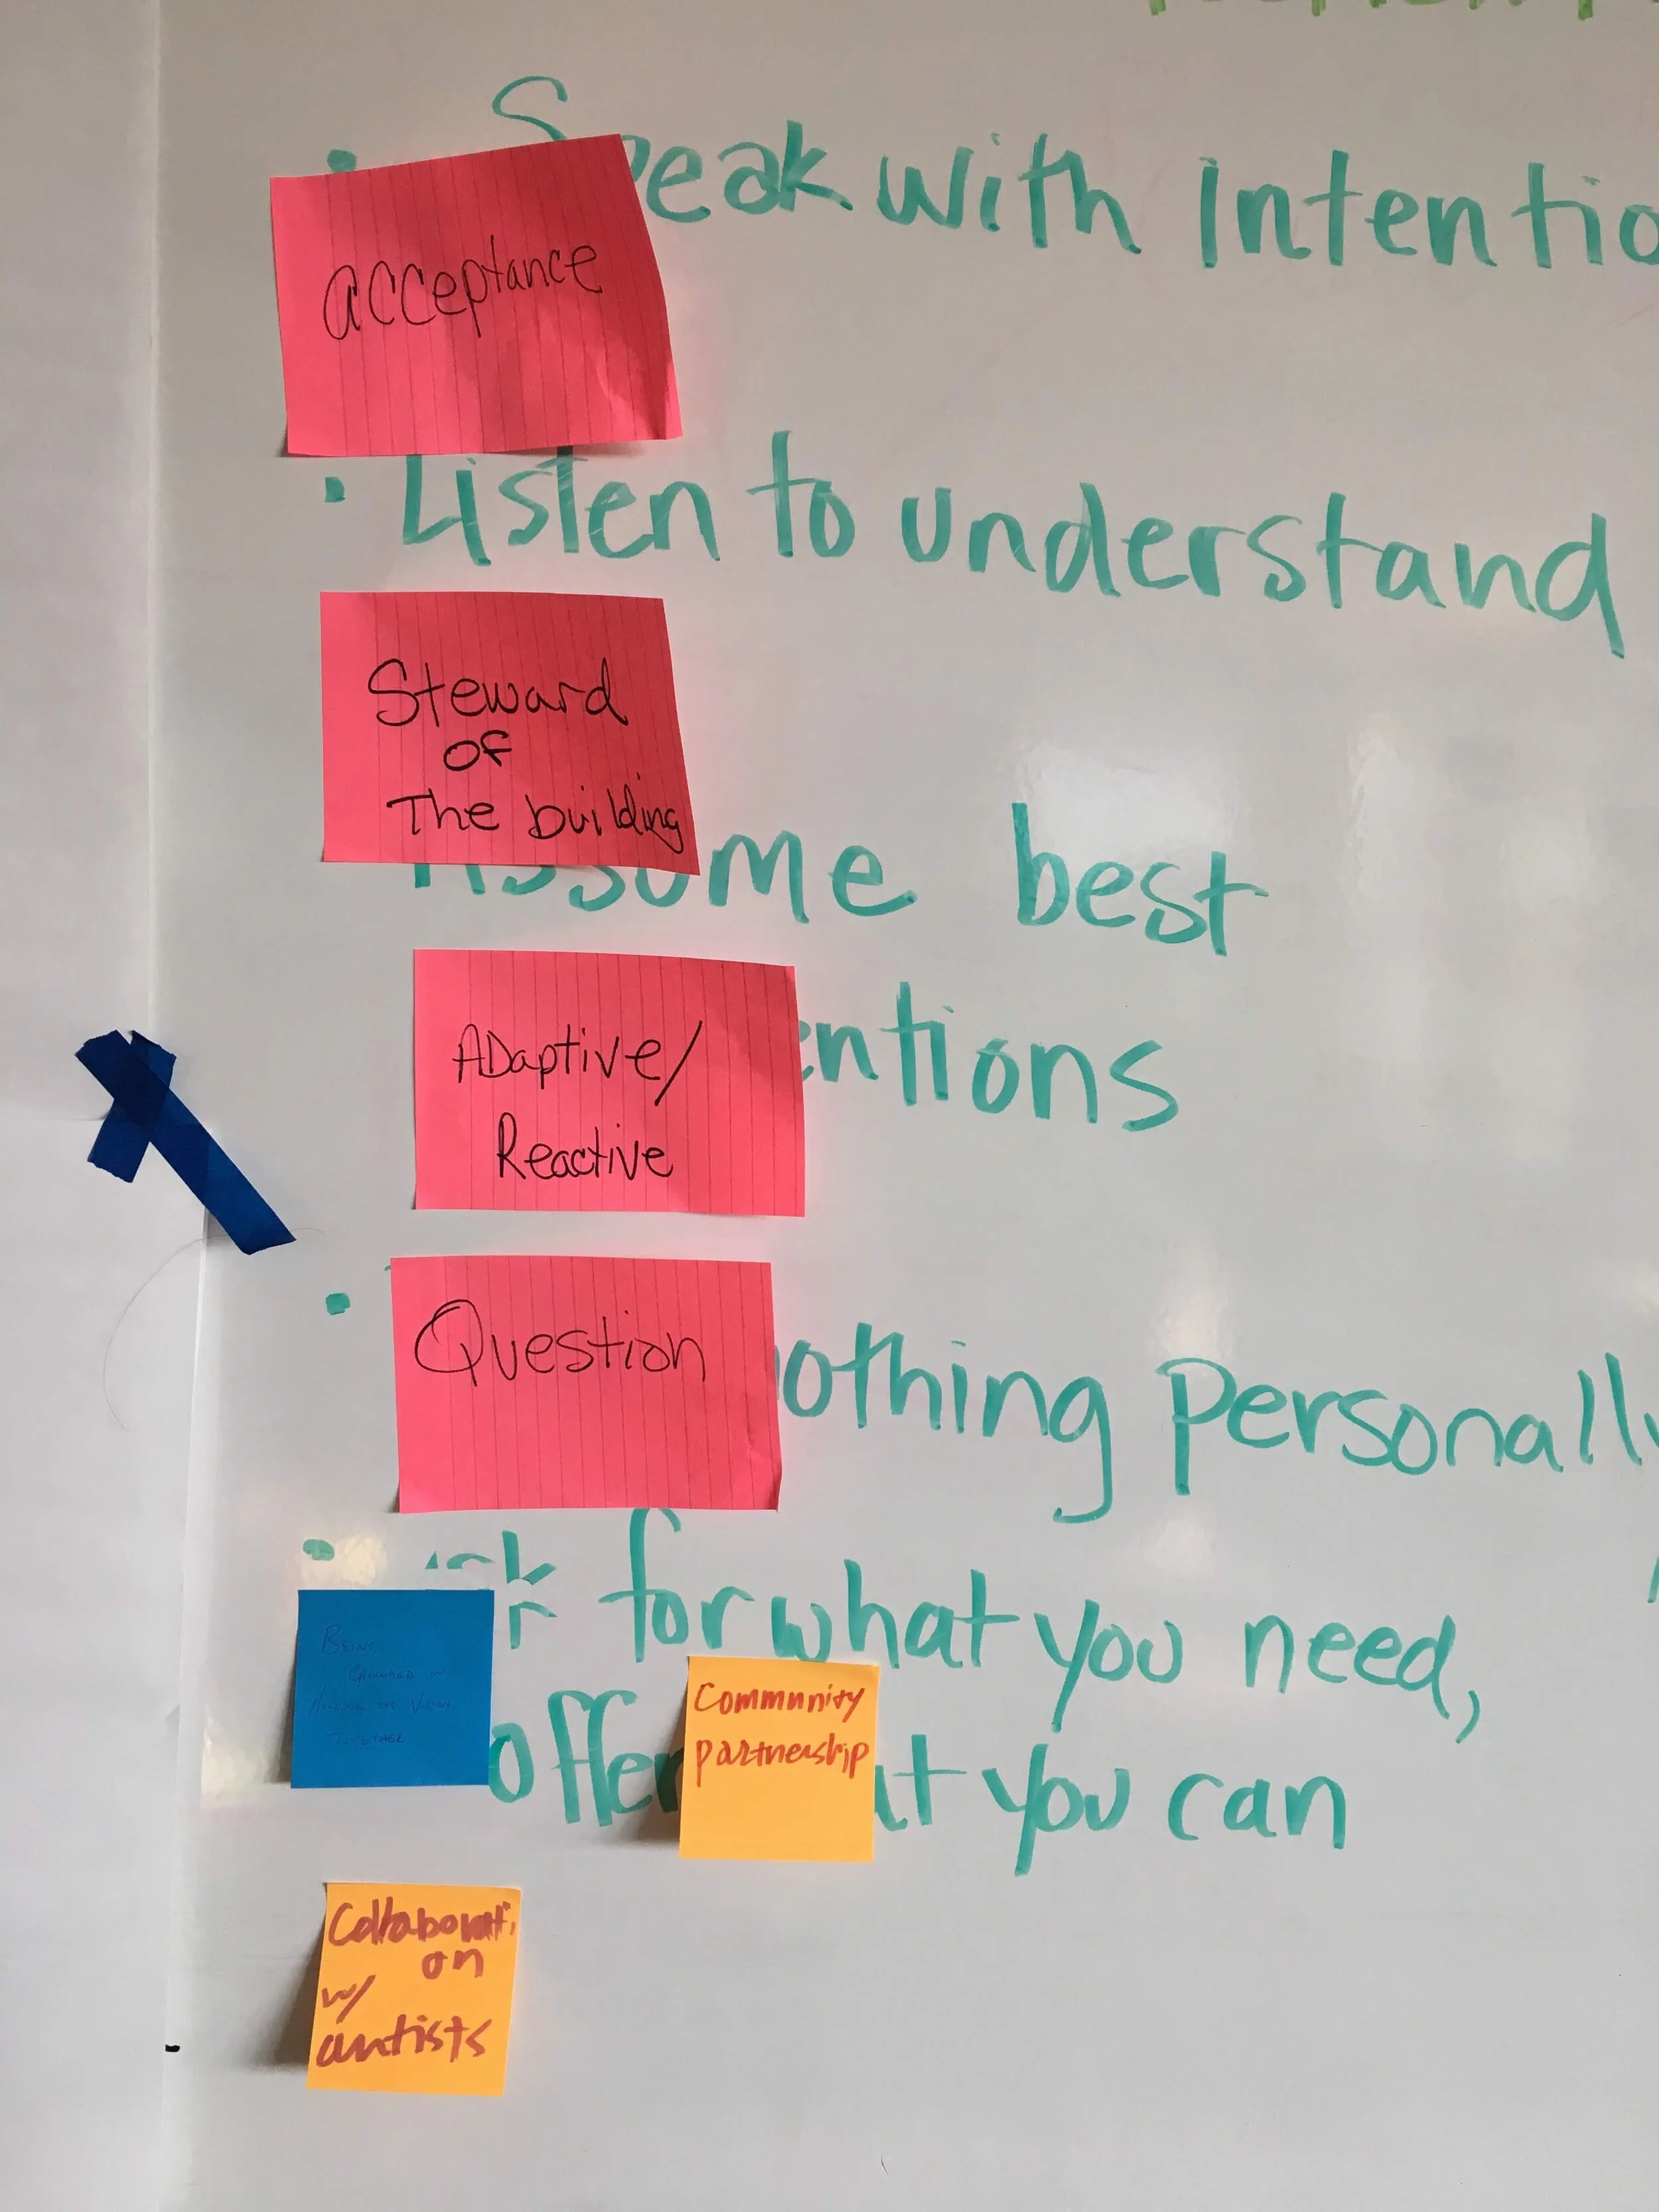 Speak with Intentio
acceptance
Listen to understand
Steward
of
The building
Assume best
ADaptive/
Reactive
entions
Question
nothing personally
Ask for what you need,
BEING
GROUNDED IN
THE VISION
TOGETHER
Community
partnership
offer
at you can
Collaborati
on
w/
artists